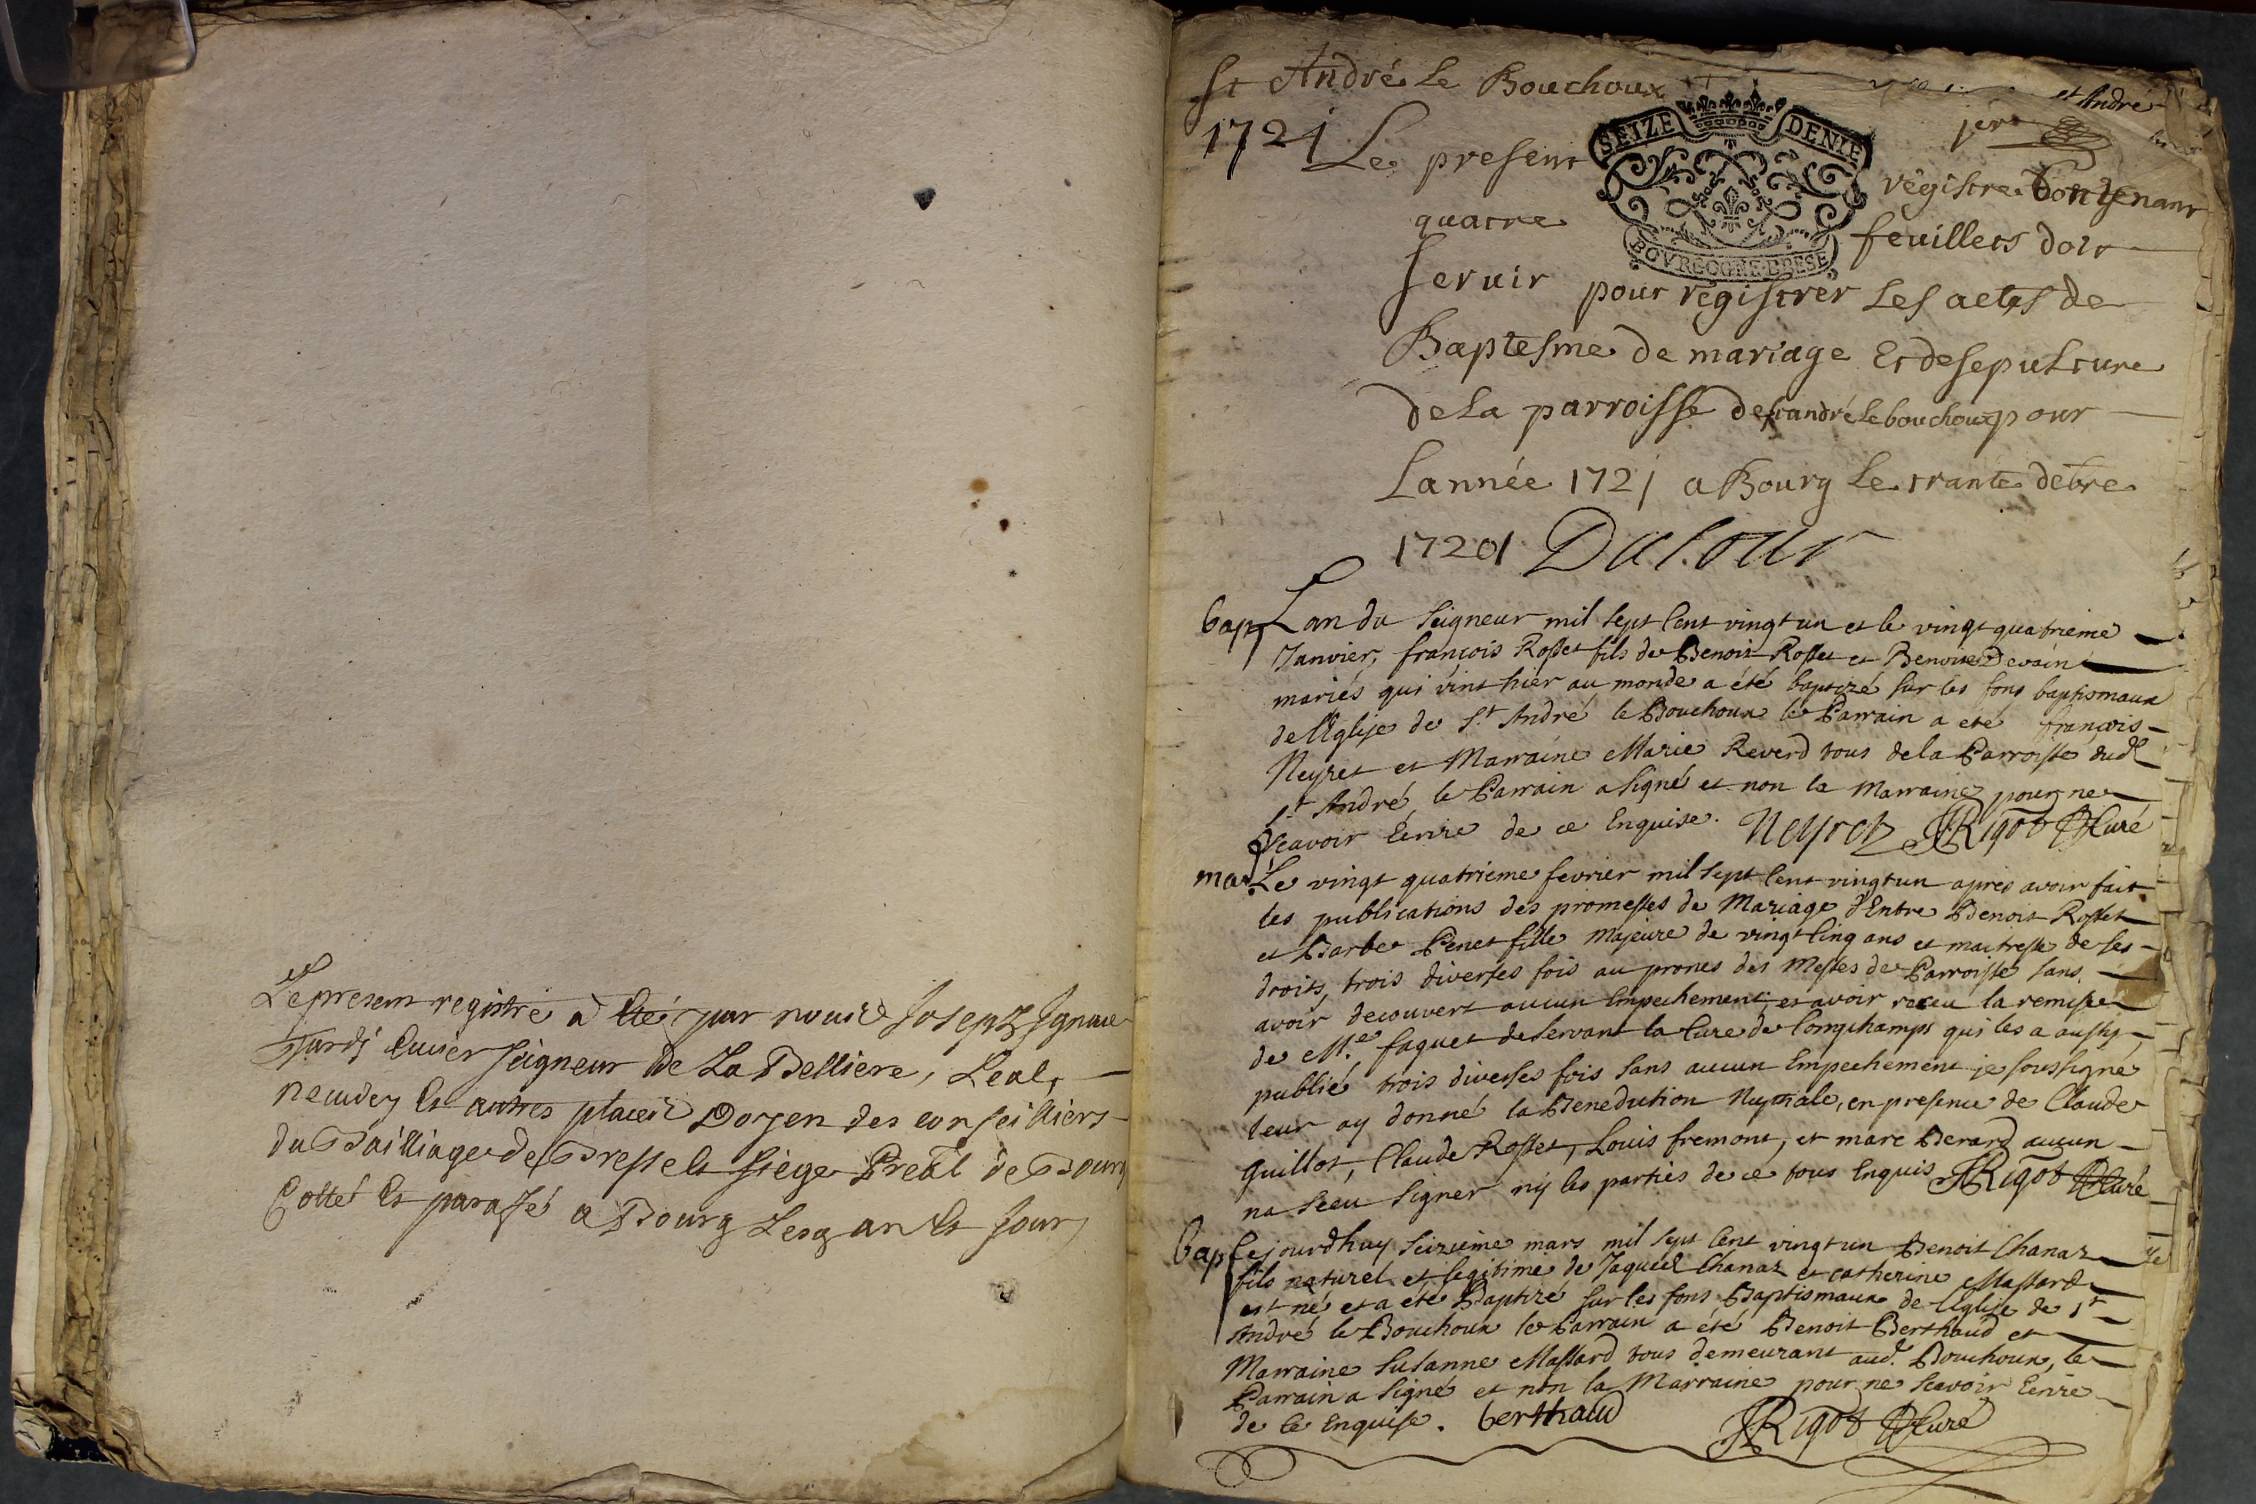 Le present registre a Eté par nous Joseph Ignace
Ecuier seigneur de La Belliere, Leal,
et autres places Doyen des conseilliers
du Bailliage de Bresse et siege Preal de Bourg
Cotté et parafé a Bourg Lesq an et jour
St André le Bouchoux
et André
1721
1ere
SEIZE DENIE
BOVRGOGNE BRESE
Le present registre Contenant
quatre feuillets doit
servir pour registrer Les actes de
Baptesme de mariage Et de sepulture
de La parroisse de st andré le bouchoux pour
Lannée 1721 a Bourg le trante debre
1720
bap Lan du seigneur mil sept Cent vingt un et le vingt quatrieme
Janvier, françois Rosset fils de Benoit Rosset et Benoite Devain
mariés qui vint hier au monde a été baptizé sur les fons baptismaux
de lEglise de St André le Bouchoux le Parrain a eté françois
Neyret et Marraine Marie Reverd tous de la Parroisse dud
St André, le Parrain a signé et non la Marraine pour ne
sçavoir Ecrire de ce Enquise. Neyret JRigot Curé
mar Le vingt quatrieme fevrier mil sept Cent vingt un apres avoir fait
les publications des promesses de Mariage d'Entre Benoit Rosset
et Barbe Penet fille Majeure de vingt Cinq ans et maitresse de ses
droits, trois diverses fois au prones des Messes de Parroisse sans
avoir decouvert aucun Empechement, et avoir receu la remise
de Mre faquet deservant la Cure de Longchamps qui les a aussy
publié trois diverses fois sans aucun Empechement je soussigné
leur ay donné la Benediction Nuptiale, en presence de Claude
Guillot, Claude Rosset, Louis fremont, et marc Berard aucun
na sceu signer ny les parties de ce tous Enquis JRigot Curé
bap Cejourdhuy seizieme mars mil sept Cent vingt un Benoit Chanaz
fils naturel et legitime de Jaques Chanaz et catherine Massard
est né et a été Baptizé sur les fons Baptismaux de lEglise de St
André le Bouchoux le Parrain a été Benoit Berthaud et
Marraine Susanne Massard tous demeurant aud. Bouchoux, le
Parrain a signé et non la Marraine pour ne scavoir Ecrire
de ce Enquise. berthaud JRigot Curé